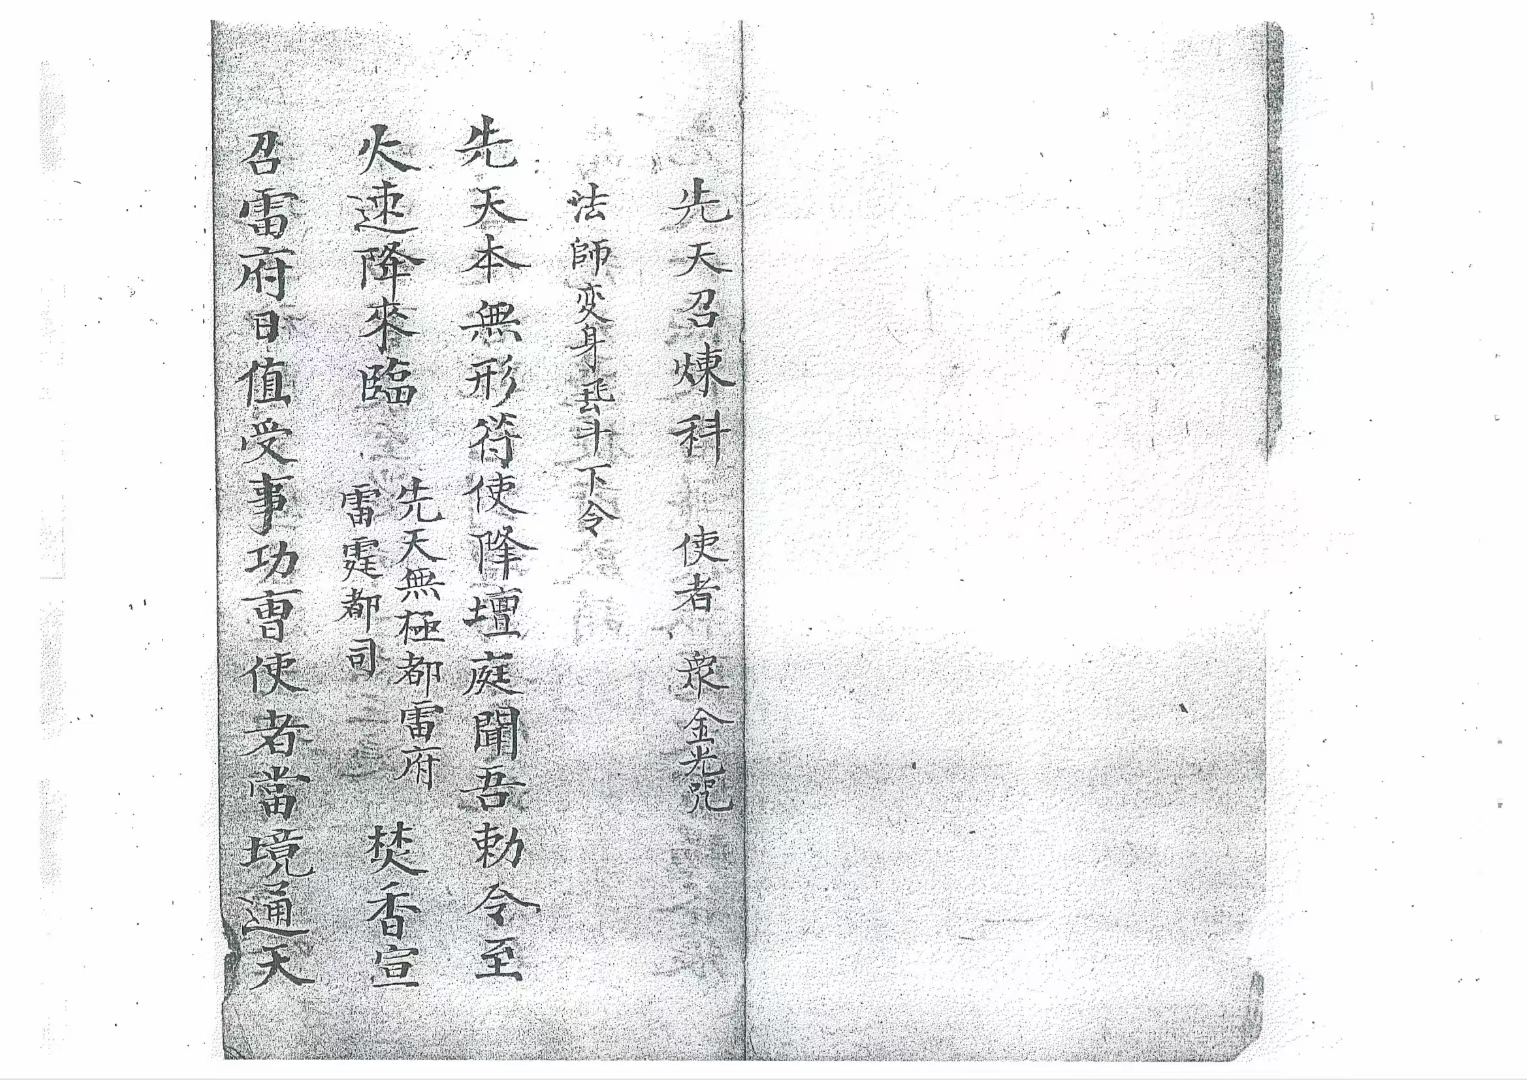 先天召煉科 使者 眾金光咒
法師变身 斗下令
先天本無形符使降壇庭聞吾勅令至
火速降來臨 先天無極都雷府 焚香宣
雷霆都司
召雷府日值受事功曹使者當境通天